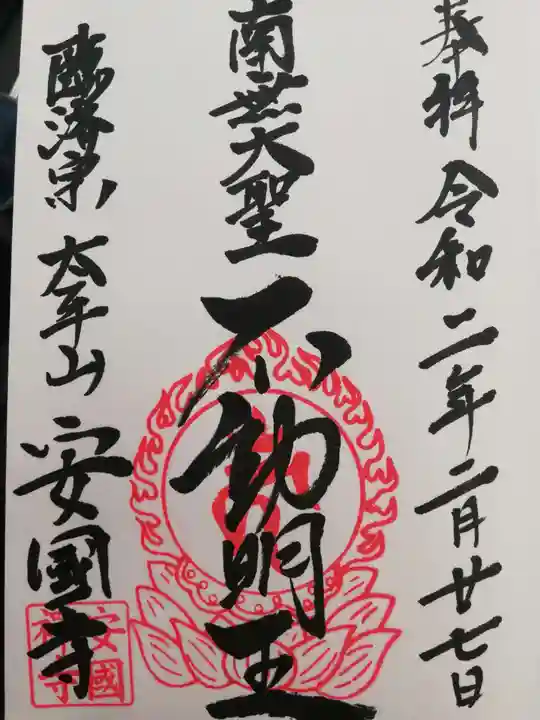 奉拝 令和二年二月廿七日
南無大聖 不動明王
臨済宗 太平山 安國寺
安國禅寺